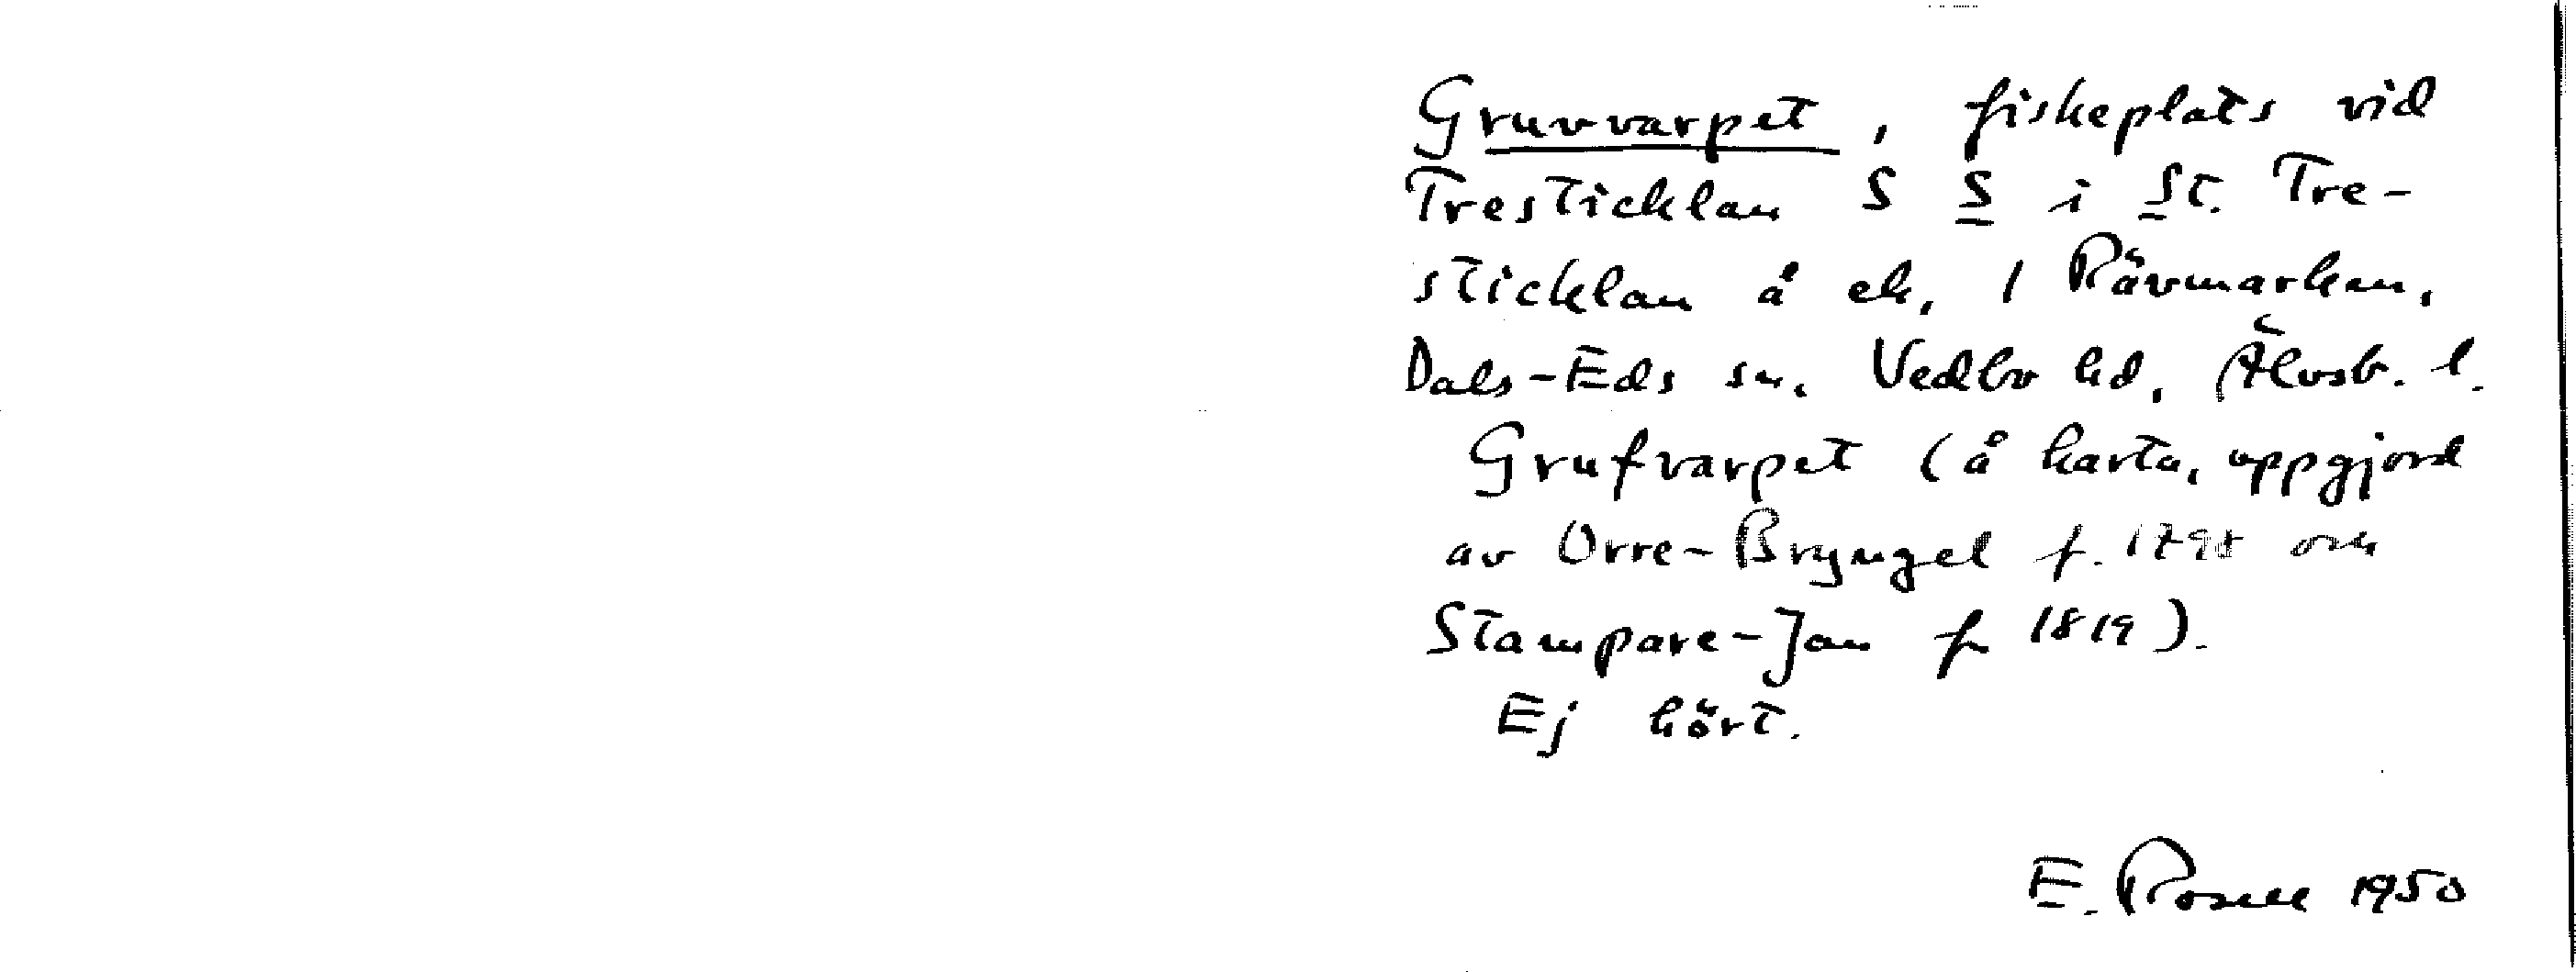 Gruvvarpet, fiskeplats vid
Tresticklan S S i St. Tre-
sticklan å ek, 1 Rävmarken,
Dals-Eds sn. Vedbo hd, Älvsb. l.
Grufvarpet (å karta, uppgjord
av Orre-Bryngel f. och
Stampare-Jan f 1819).
Ej hört.
E. Rosell 1950